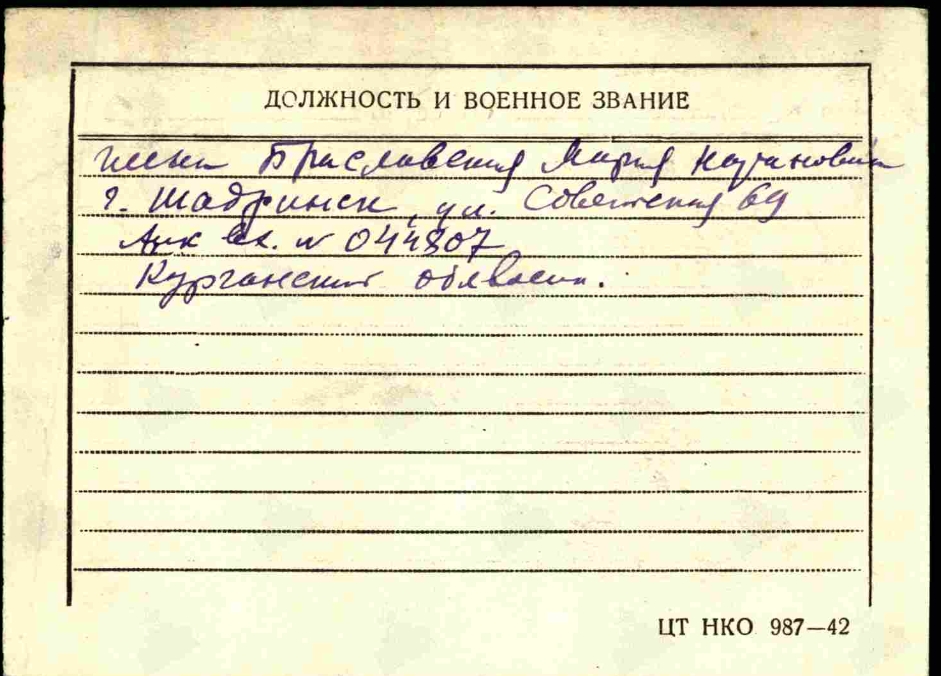 ДОЛЖНОСТЬ И ВОЕННОЕ ЗВАНИЕ
жена Браславская Мария Натановна
г. Шадринск, ул. Советская 69
вх. № 044807
Курганский области.
ЦТ НКО 987—42